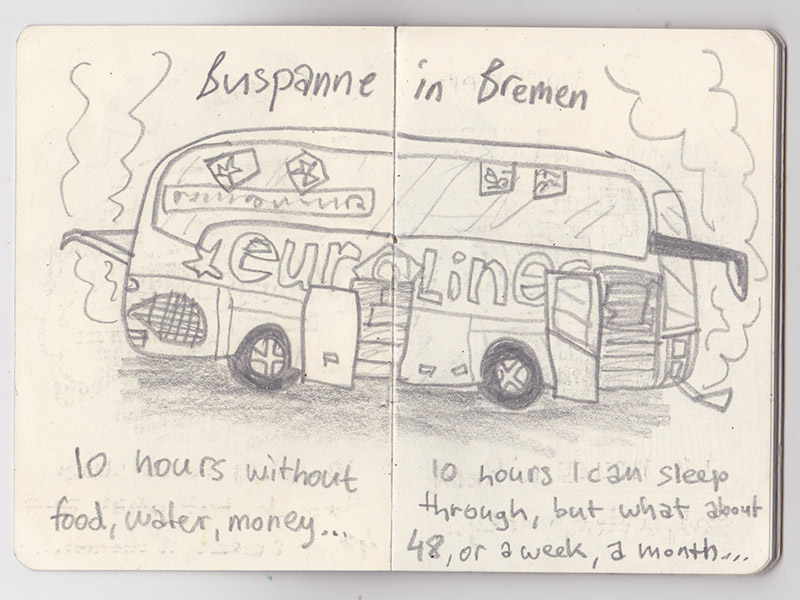 Buspanne in Bremen
eurolines
10 hours without
food, water, money...
10 hours I can sleep
through, but what about
48, or a week, a month...